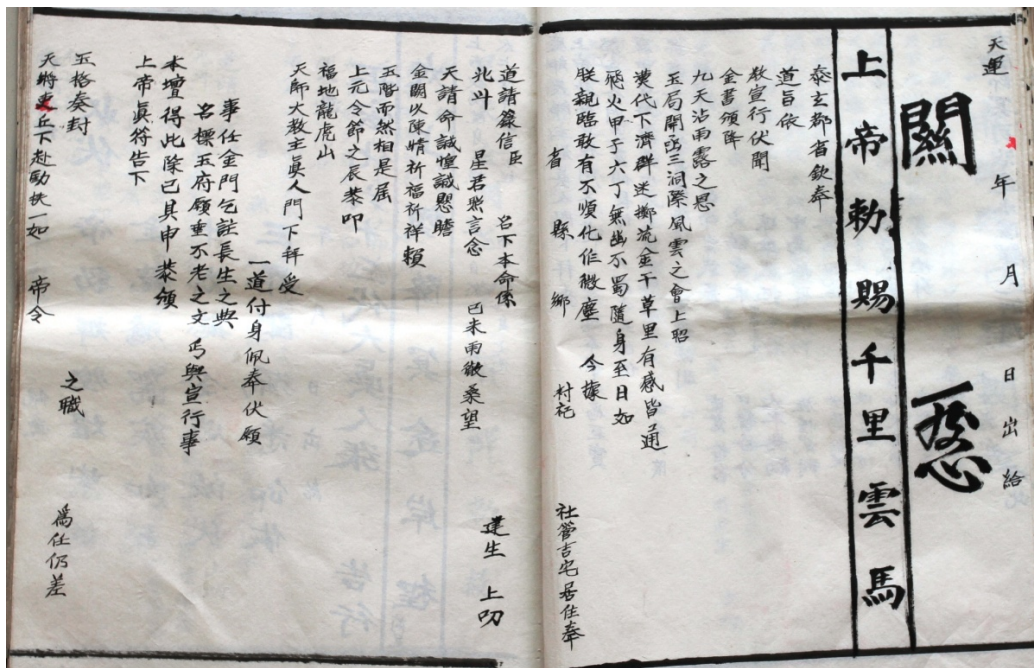 天運 年 月 日出給
關
上帝勅賜千里雲馬
泰玄都省欽奉
道旨依
教宣行伏聞
金書頒降
九天沾雨露之恩
玉局開 三洞際風雲之會上昭
漢代下濟群迷擲流金千草里有感皆通
飛火甲子六丁無幽不蜀隨身至日如
朕親臨敢有不順化作微塵 今據
省 縣 鄉 村祀
社管吉宅居住奉
道請籙信臣 名下本命係
建生 上叩
北斗 星君照言念 巳未雨敬桑望
天請命誠惶誠懇瞻
金闕以陳情祈福祈祥賴
五階而然相是屆
上元令節之辰恭叩
福地龍虎山
天師大教主眞人門下拜受
一道付身佩奉伏願
事任金門乞註長生之典
名標五府願重不老之文 丐與宣行事
本壇得此除已具申恭領
上帝眞符告下
之職
為任仍差
五格奏封
天將 丘下赴勛扶一如 帝令